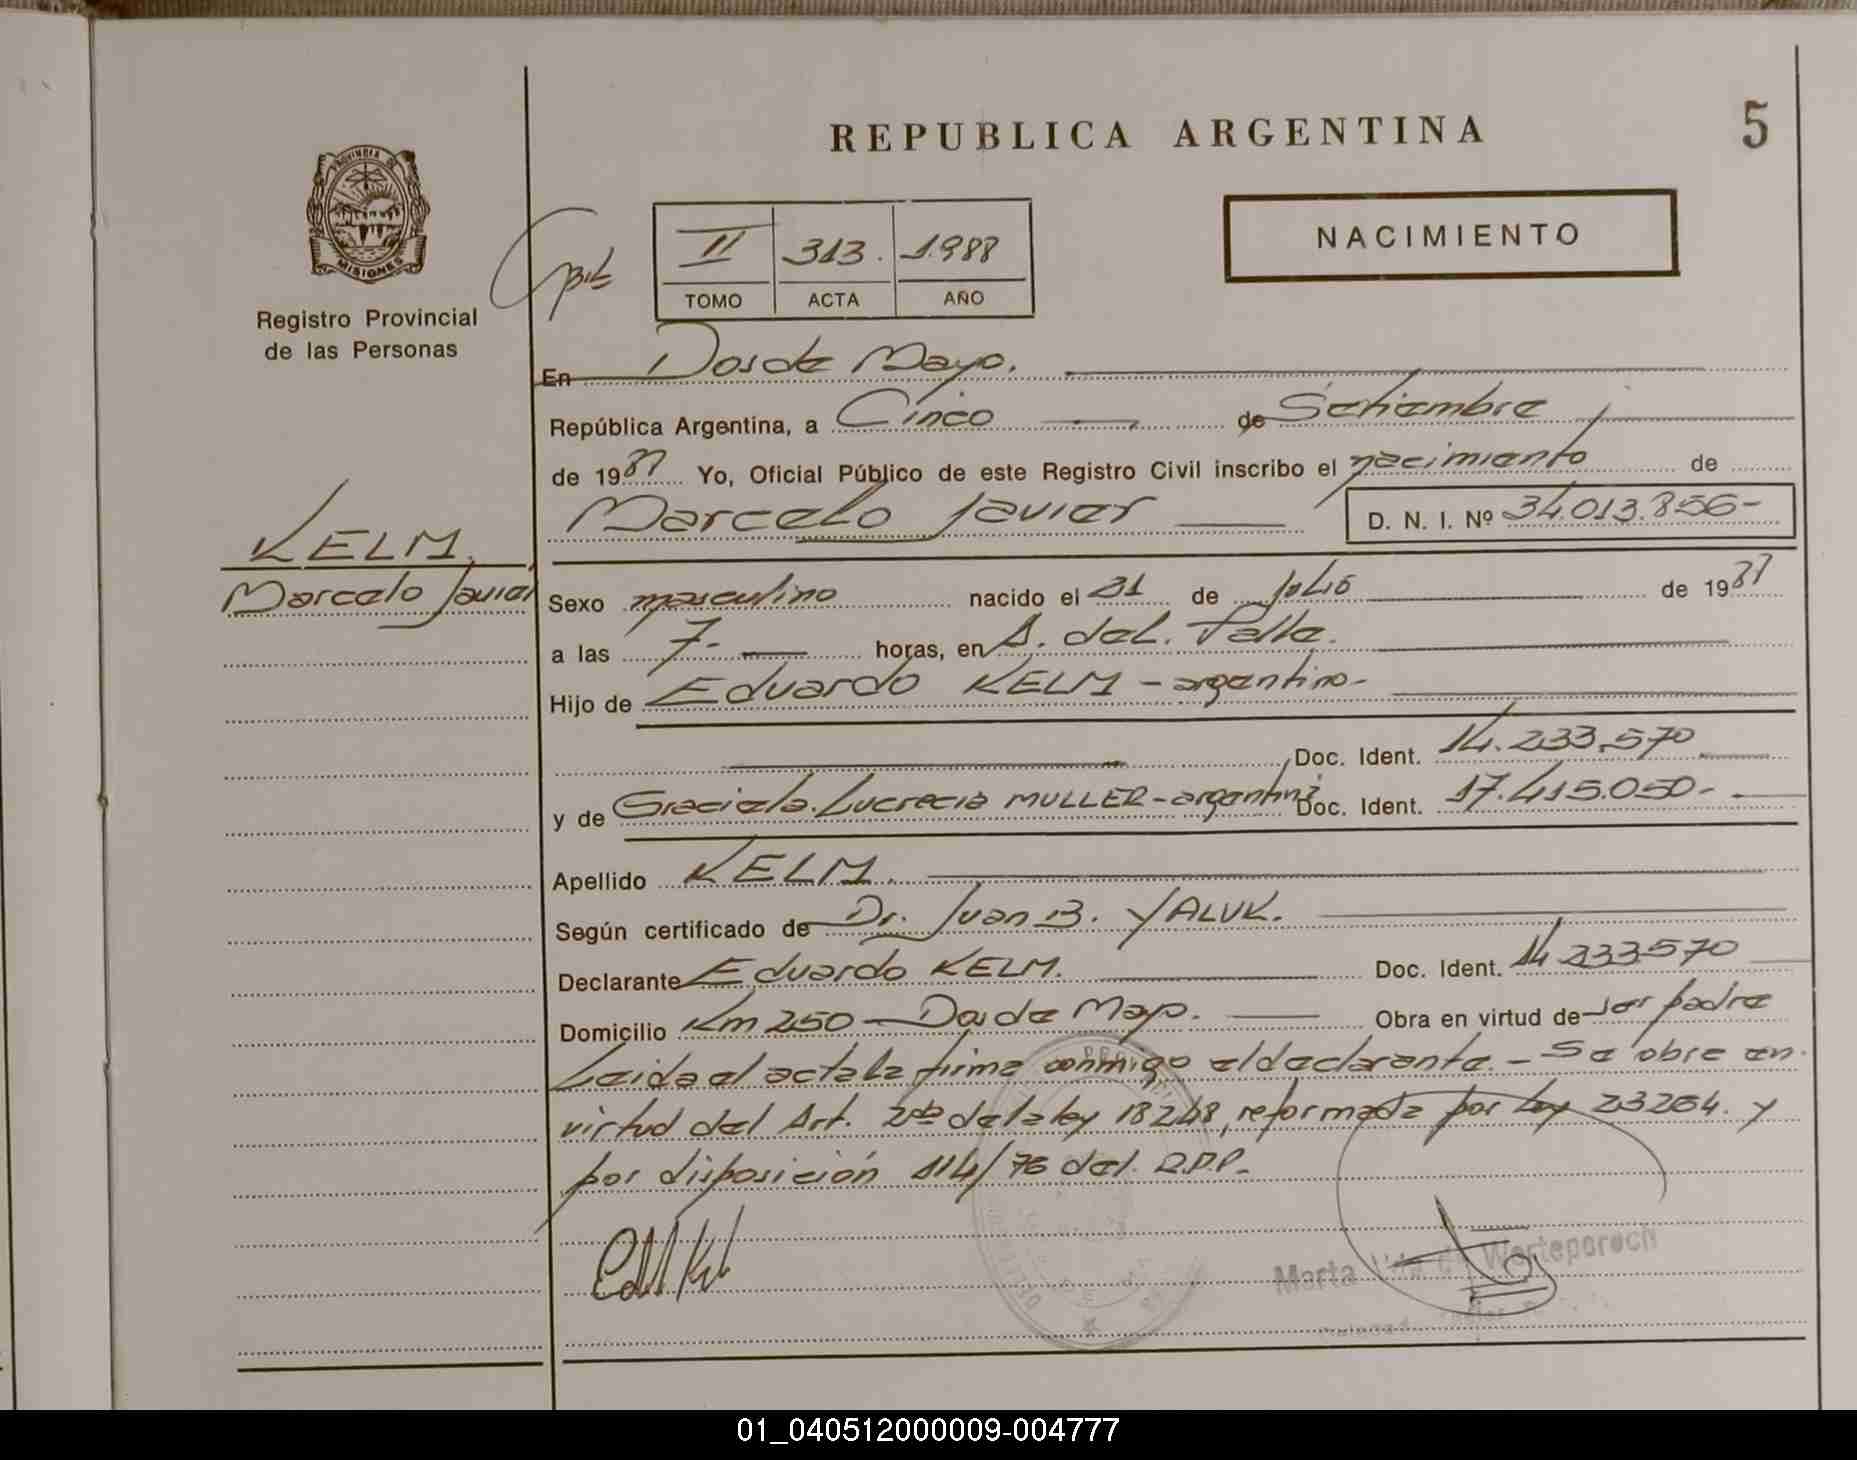 REPUBLICA ARGENTINA
5
PROVINCIA DE
MISIONES
Registro Provincial
de las Personas
II 313. 1.988
TOMO ACTA AÑO
NACIMIENTO
En Dos de Mayo.
República Argentina, a Cinco de Setiembre
de 1988 Yo, Oficial Público de este Registro Civil inscribo el nacimiento de
Marcelo Javier D. N. I. Nº 34.013.856-
KELM.
Marcelo Javier
Sexo masculino nacido el 31 de julio de 1988
a las 7- horas, en A. del. Valle.
Hijo de Eduardo KELM - argentino-
Doc. Ident. 14.233.570
y de Graciela. Lucrecia MULLER - argentina Doc. Ident. 17.415.050.-
Apellido KELM.
Según certificado de Dr. Juan B. YALUK.
Declarante Eduardo KELM. Doc. Ident. 14.233.570
Domicilio Km 250 - Dos de Mayo. Obra en virtud de ser padre
Leida el acta la firma conmigo el declarante. - Se obre en
virtud del Art. 2do de la ley 18248, reformada por ley 23264. y
por disposición 114/76 del. R.P.P.-
Marta de Werteporoch
01_040512000009-004777